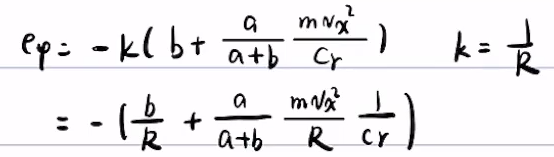 eφ = -k( b + a/(a+b) mVx²/Cr )    k = 1/R
= -( b/R + a/(a+b) mVx²/R 1/Cr )